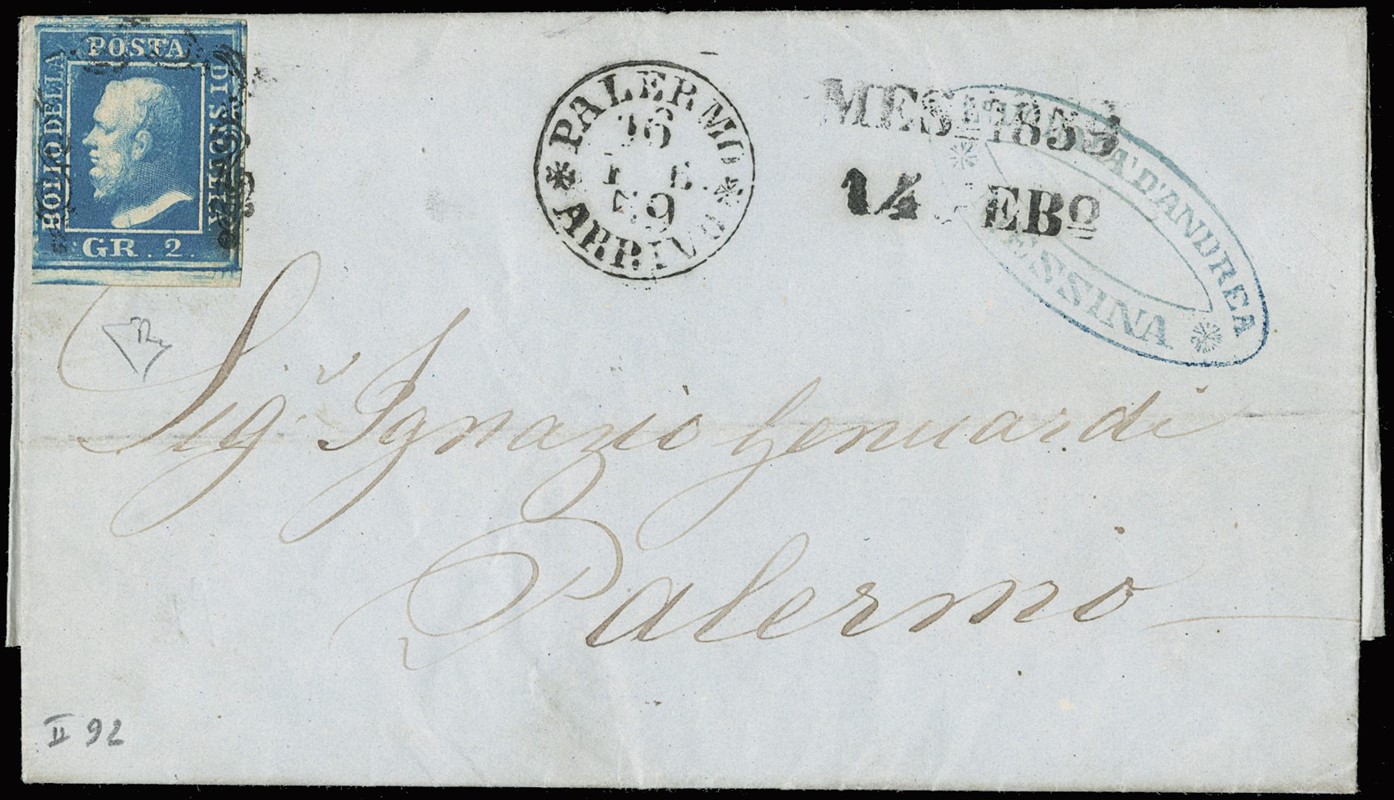 BOLLO DELLA
POSTA
DI SICILIA
GR. 2.
* PALERMO *
16
59
ARRIVO
MESᴬ 1859
14 EBº
D'ANDREA
ESSINA
Sigʳ Ignazio Genuardi
Palermo
II 92